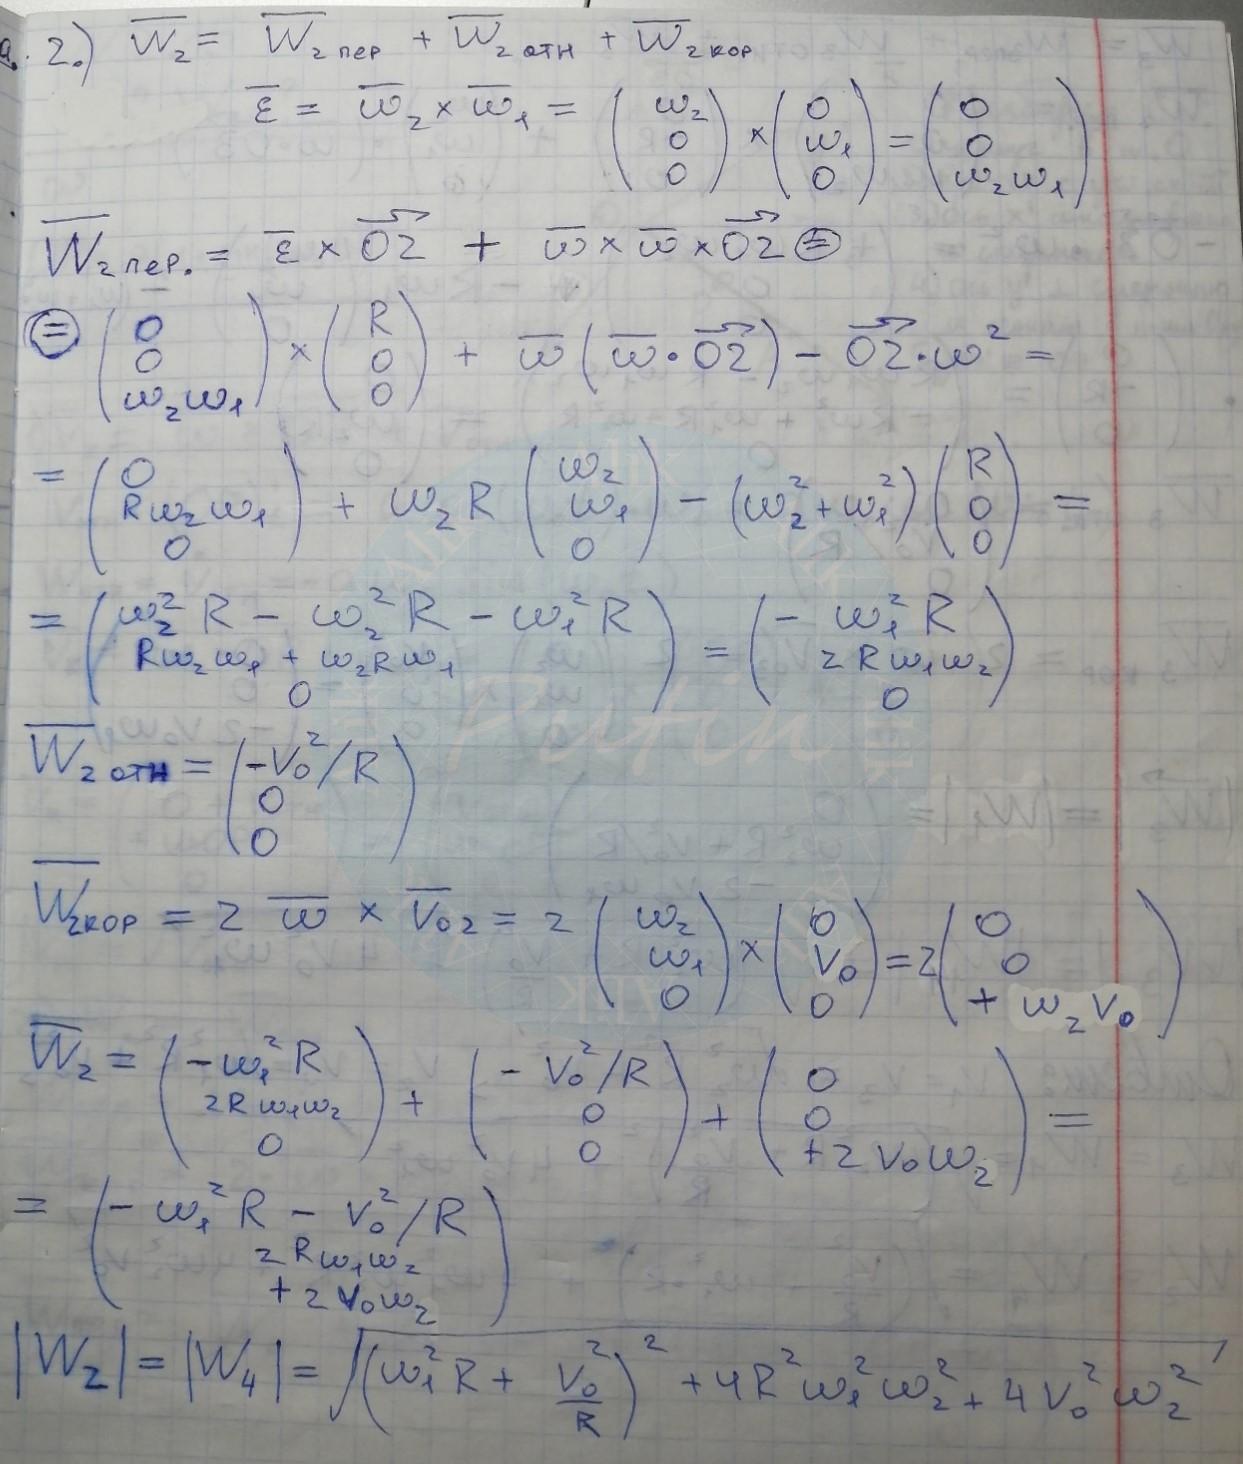 2.) W̅₂ = W̅₂ пер + W̅₂ отн + W̅₂ кор
ε̅ = ω̅₂ × ω̅₁ = (ω₂ 0 0) × (0 ω₁ 0) = (0 0 ω₂ω₁)
W̅₂ пер. = ε̅ × O2 + ω̅ × ω̅ × O2 ⊜
⊜ (0 0 ω₂ω₁) × (R 0 0) + ω̅ (ω̅ · O2) − O2 · ω² =
= (0 Rω₂ω₁ 0) + ω₂R (ω₂ ω₁ 0) − (ω₂² + ω₁²) (R 0 0) =
= (ω₂²R − ω₂²R − ω₁²R Rω₂ω₁ + ω₂Rω₁ 0) = (− ω₁²R 2Rω₁ω₂ 0)
Putin
W̅₂ отн = (−V₀²/R 0 0)
W̅₂кор = 2 ω̅ × V̅₀₂ = 2 (ω₂ ω₁ 0) × (0 V₀ 0) = 2 (0 0 + ω₂V₀)
W̅₂ = (−ω₁²R 2Rω₁ω₂ 0) + (− V₀²/R 0 0) + (0 0 +2V₀ω₂) =
= (− ω₁²R − V₀²/R 2Rω₁ω₂ +2V₀ω₂)
|W₂| = |W₄| = √((ω₁²R + V₀²/R)² + 4R²ω₁²ω₂² + 4V₀²ω₂²)